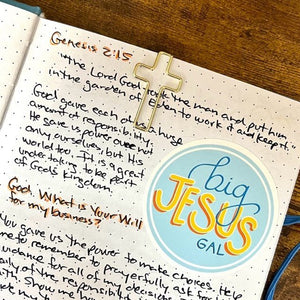 Genesis 2:15
"The Lord God took the man and put him
in the garden of Eden to work it and keep it.
God gave each of us a huge
amount of responsibility.
He gave us power over not
only ourselves, but this
world too. It is a great
undertaking to be part
of God's kingdom.
God, What is Your Will
for my business?
You gave us the power to make choices. Help
me to remember to prayerfully ask
guidance for all of my decisions
of the responsibility
Show me
big
JESUS
GAL